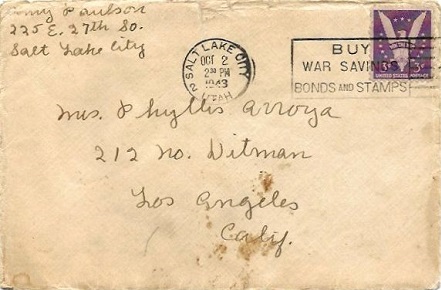 Paulson
225 E. 27th So.
Salt Lake City
SALT LAKE CITY
OCT 2
230 PM
1943
UTAH
2
BUY
WAR SAVINGS
BONDS AND STAMPS
3¢
UNITED STATES POSTAGE
Mrs. Phyllis Arroya
212 No. Ditman
Los Angeles
Calif.